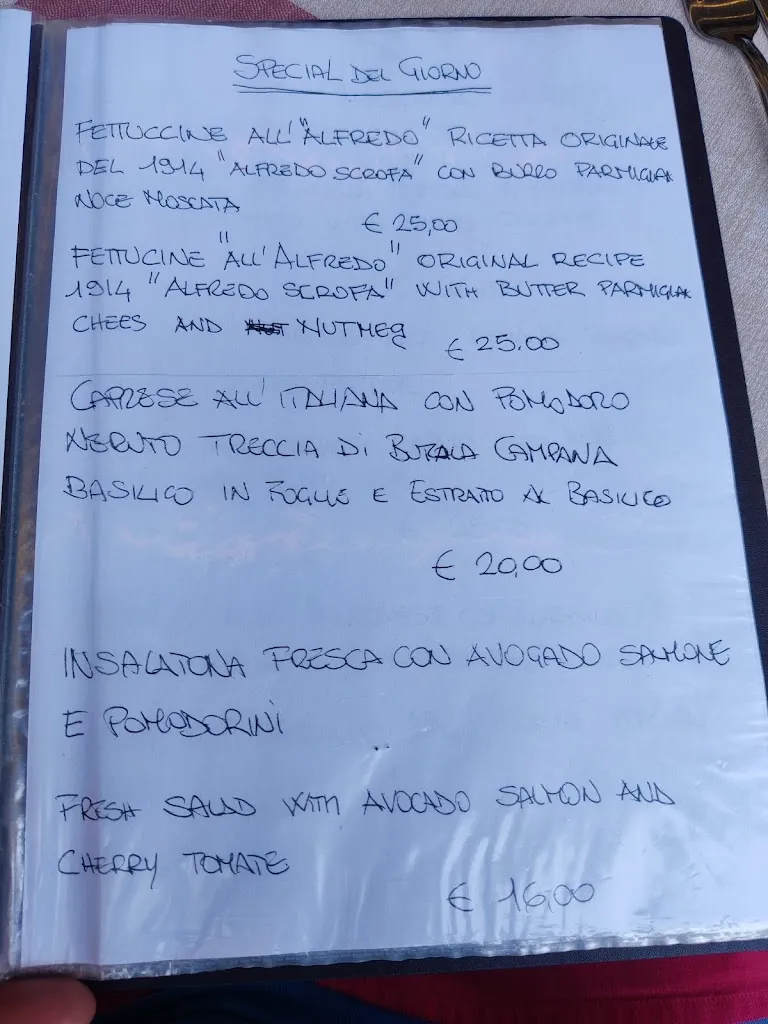 SPECIAL DEL GIORNO
FETTUCCINE ALL'"ALFREDO" RICETTA ORIGINALE
DEL 1914 "ALFREDO SCROFA" CON BURRO PARMIGIAN
NOCE MOSCATA
€ 25,00
FETTUCINE "ALL'ALFREDO" ORIGINAL RECIPE
1914 "ALFREDO SCROFA" WITH BUTTER PARMIGIAN
CHEES AND NUTMEG
€ 25.00
CAPRESE ALL'ITALIANA CON POMODORO
NERUTO TRECCIA DI BUFALA CAMPANA
BASILICO IN FOGLIE E ESTRATTO AL BASILICO
€ 20,00
INSALATONA FRESCA CON AVOGADO SALMONE
E POMODORINI
FRESH SALAD WITH AVOCADO SALMON AND
CHERRY TOMATE
€ 16,00